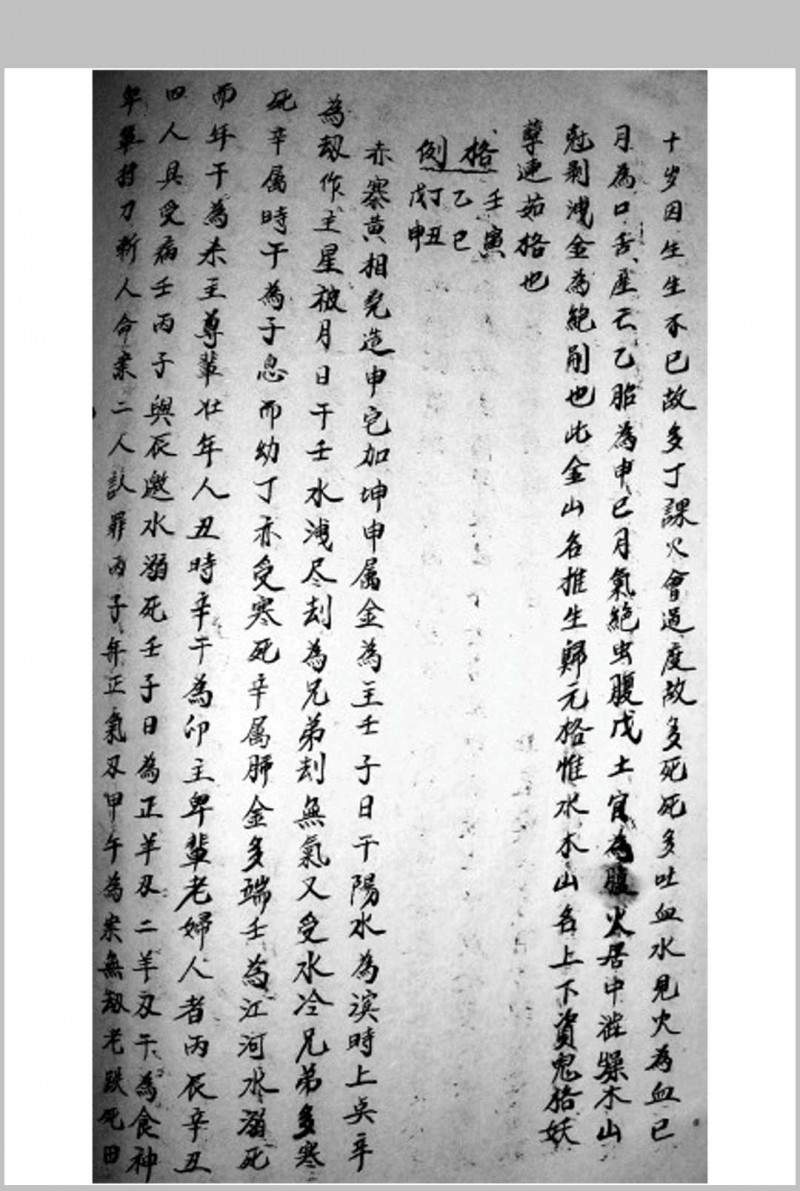 十岁因生生不已故多丁課火會過度故多死死多吐血水見火為血已
月為口舌座云乙胎為申巳月氣絕虫腹戊土官為腹火居中湴燥木山
尅剥洩金為絕剐也此金山名推生歸元格惟水木山名上下資鬼格妖
孽連茹格也
格 壬寅
乙巳
例 丁丑
戊申
赤寨黄相堯造申宅加坤申属金為主壬子日干陽水為滨時上奌辛
為刼作主星被月日干壬水洩尽刦為兄弟刦無氣又受水冷兄弟多寒
死辛属時干為子息而幼丁亦受寒死辛属肺金多端壬為江河水溺死
而年干為未主尊輩壮年人丑時辛干為卯主卑輩老婦人者丙辰辛丑
四人具受病壬丙子與辰邀水溺死壬子日為正羊刃二羊刃干為食神
卑輩持刀斬人命案二人認罪丙子年正氣刃甲午為案無刼老跌死田